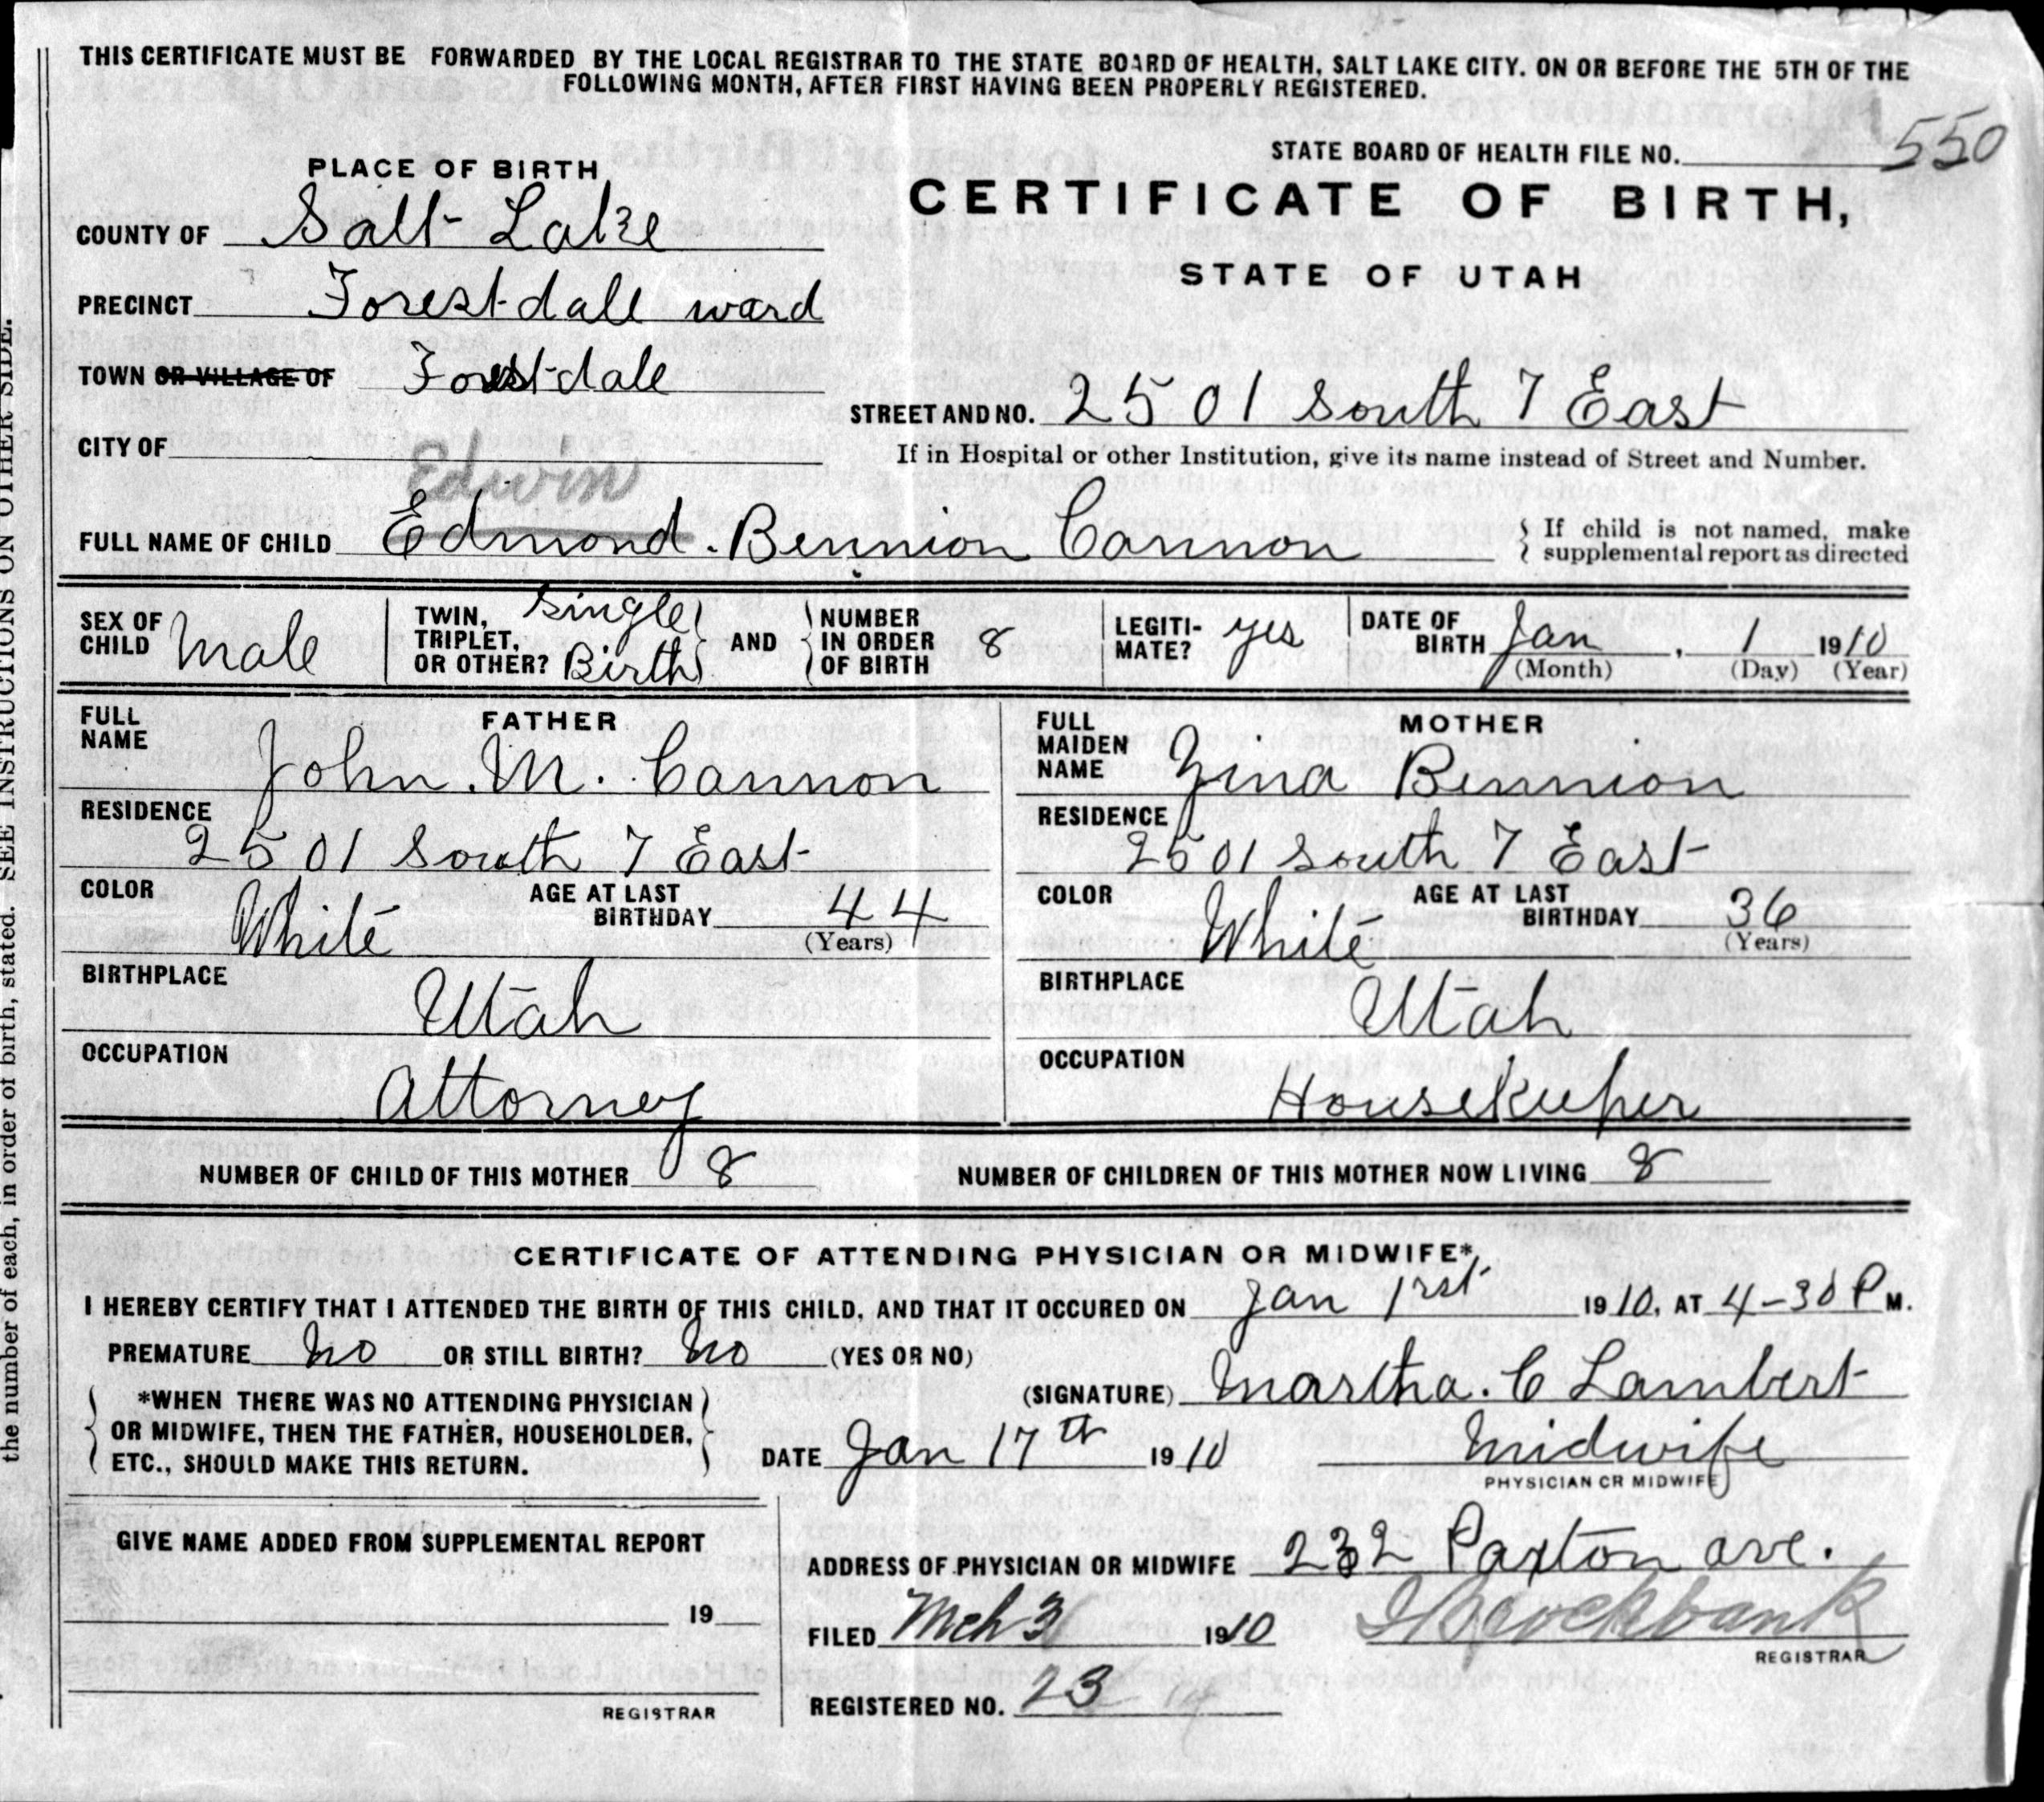 THIS CERTIFICATE MUST BE FORWARDED BY THE LOCAL REGISTRAR TO THE STATE BOARD OF HEALTH, SALT LAKE CITY. ON OR BEFORE THE 5TH OF THE
FOLLOWING MONTH, AFTER FIRST HAVING BEEN PROPERLY REGISTERED.
STATE BOARD OF HEALTH FILE NO. 550
PLACE OF BIRTH
CERTIFICATE OF BIRTH,
STATE OF UTAH
COUNTY OF Salt Lake
PRECINCT Forestdale ward
TOWN OR VILLAGE OF Forestdale
STREET AND NO. 2501 South 7 East
CITY OF
If in Hospital or other Institution, give its name instead of Street and Number.
Edwin
FULL NAME OF CHILD Edmond. Bennion Cannon
If child is not named, make
supplemental report as directed
SEX OF CHILD Male
TWIN, TRIPLET, OR OTHER? Single Birth
AND NUMBER IN ORDER OF BIRTH 8
LEGITI-MATE? yes
DATE OF BIRTH Jan, 1 1910
(Month) (Day) (Year)
FATHER
FULL NAME John. M. Cannon
RESIDENCE
2501 South 7 East
COLOR White AGE AT LAST BIRTHDAY 44
(Years)
BIRTHPLACE
Utah
OCCUPATION
Attorney
MOTHER
FULL MAIDEN NAME Zina Bennion
RESIDENCE
2501 South 7 East
COLOR White AGE AT LAST BIRTHDAY 36
(Years)
BIRTHPLACE
Utah
OCCUPATION
Housekeeper
NUMBER OF CHILD OF THIS MOTHER 8 NUMBER OF CHILDREN OF THIS MOTHER NOW LIVING 8
CERTIFICATE OF ATTENDING PHYSICIAN OR MIDWIFE*
I HEREBY CERTIFY THAT I ATTENDED THE BIRTH OF THIS CHILD, AND THAT IT OCCURED ON Jan 1rst 1910, AT 4-30 P M.
PREMATURE No OR STILL BIRTH? No (YES OR NO)
*WHEN THERE WAS NO ATTENDING PHYSICIAN
OR MIDWIFE, THEN THE FATHER, HOUSEHOLDER,
ETC., SHOULD MAKE THIS RETURN.
(SIGNATURE) Martha. C Lambert
DATE Jan 17th 1910 Midwife
PHYSICIAN OR MIDWIFE
GIVE NAME ADDED FROM SUPPLEMENTAL REPORT
19
REGISTRAR
ADDRESS OF PHYSICIAN OR MIDWIFE 232 Paxton ave.
FILED Mch 3 1910 Brockbank
REGISTRAR
REGISTERED NO. 23
the number of each, in order of birth, stated. SEE INSTRUCTIONS ON OTHER SIDE.